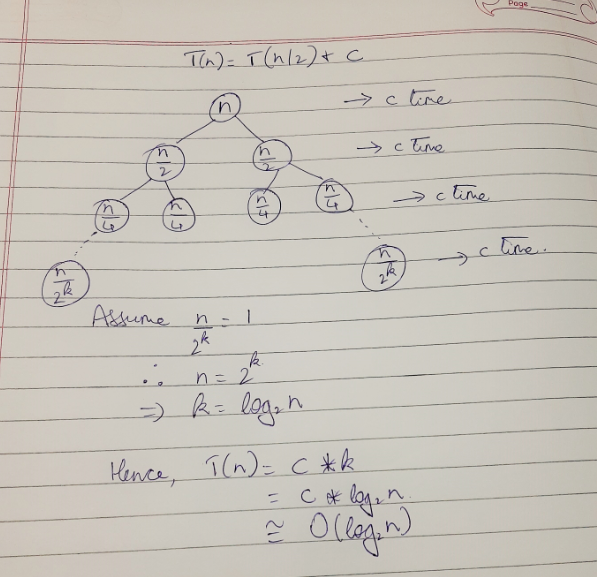 Page
T(n) = T(n/2) + C
n → c time
n/2 n/2 → c time
n/4 n/4 n/4 n/4 → c time
n/2^k n/2^k → c time.
Assume n/2^k = 1
∴ n = 2^k
⇒ k = log₂n
Hence, T(n) = C * k
= C * log₂n.
≅ O(log₂n)